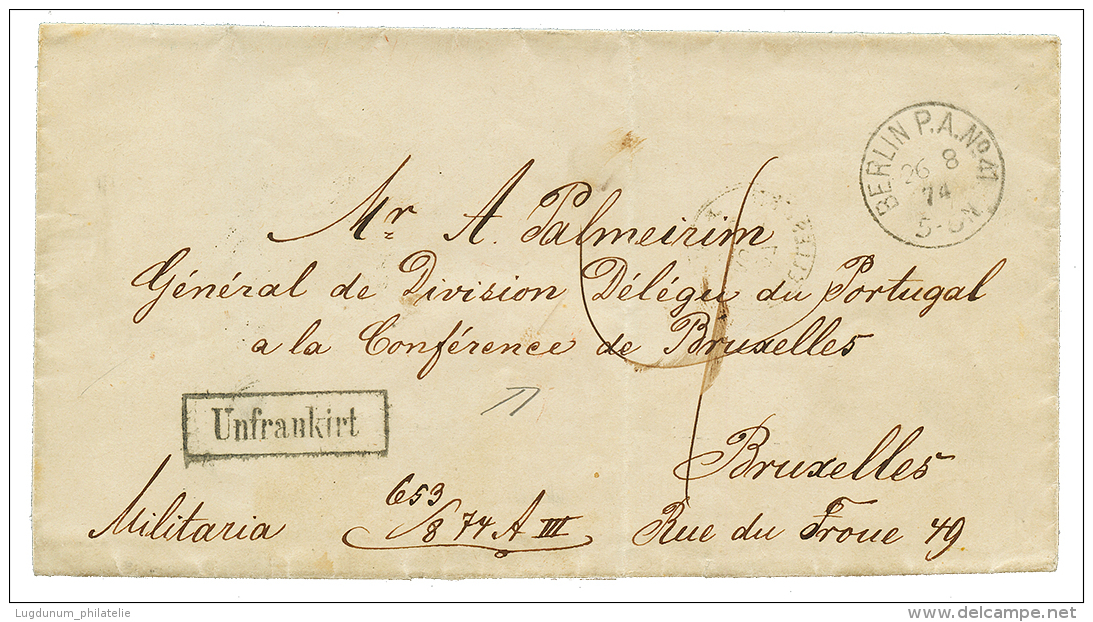 BERLIN P.A.No 41
26 8
74
5-6N
Mr. A. Palmeirim
Général de Division Délégu du Portugal
a la Conférence de Bruxelles
Unfrankirt
Bruxelles
653
/8 74 A III
Militaria
Rue du Trone 49
Lugdunum_philatelie
www.delcampe.net